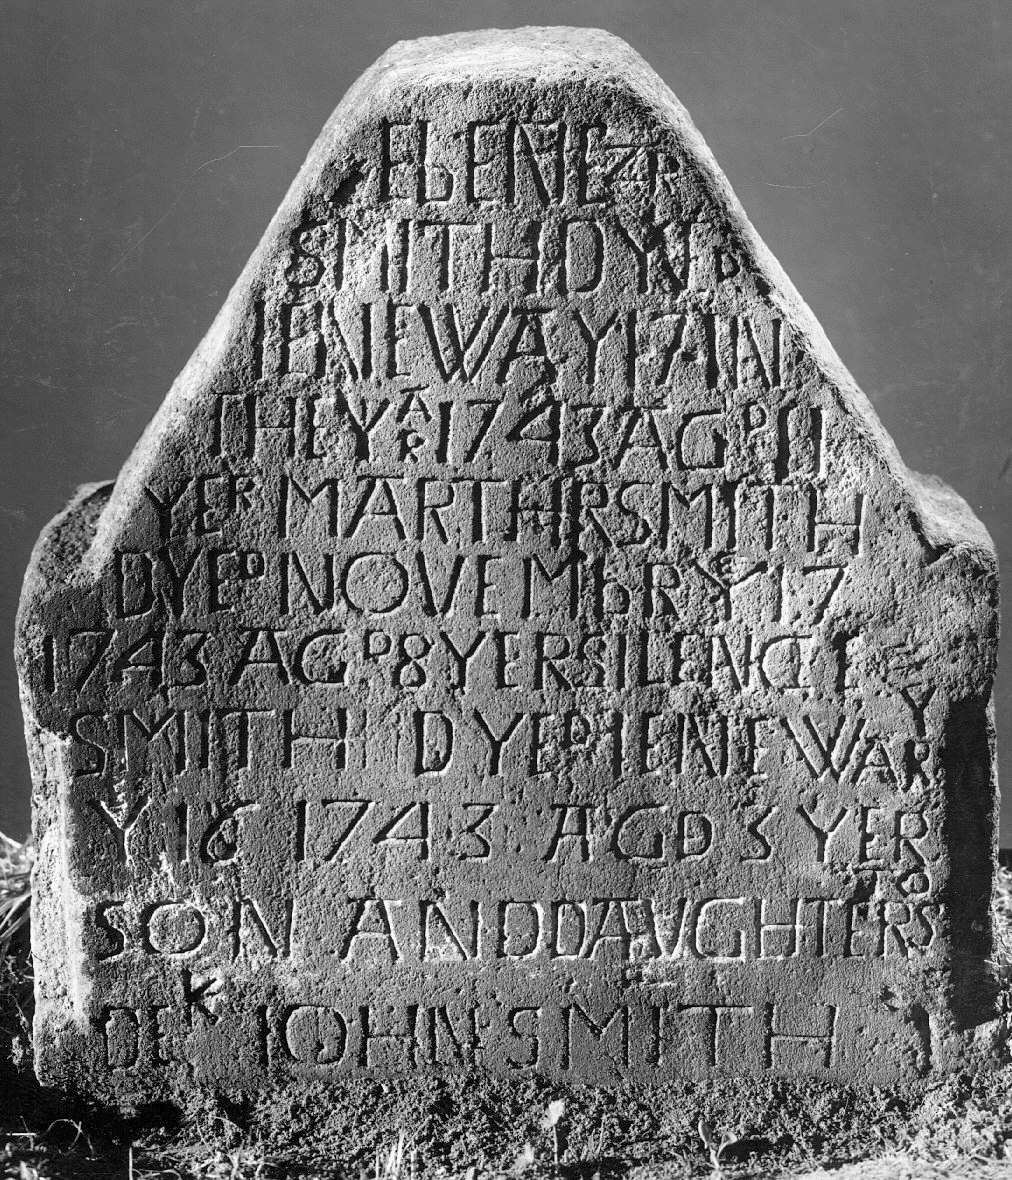 EBENEZR
SMITH DYND
IENEWAY 17 A IN
THE YAR 1743 AGD 11
YER MARTHR SMITH
DYED NOVEMbR YE 17
1743 AGD 8 YERS ILENCE
SMITH DYED IENEWARY
Y 18 1743 AGD 3 YER
SON ANDDAUGHTERS TO
DEK IOHN SMITH